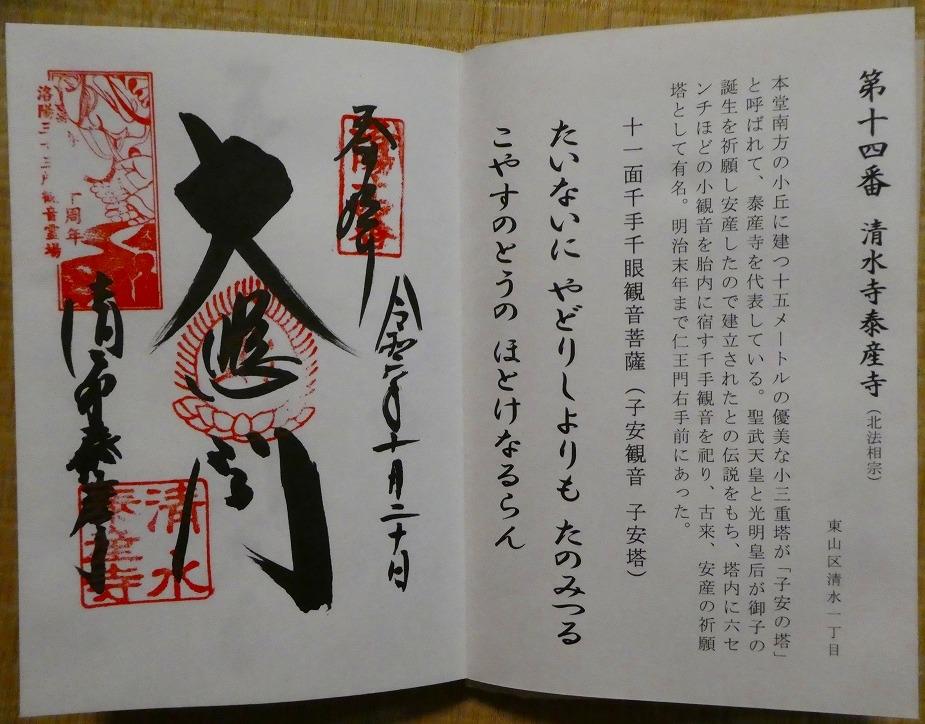 第十四番 清水寺泰産寺（北法相宗）
東山区清水一丁目
本堂南方の小丘に建つ十五メートルの優美な小三重塔が「子安の塔」
と呼ばれて、泰産寺を代表している。聖武天皇と光明皇后が御子の
誕生を祈願し安産したので建立されたとの伝説をもち、塔内に六セ
ンチほどの小観音を胎内に宿す千手観音を祀り、古来、安産の祈願
塔として有名。明治末年まで仁王門右手前にあった。
十一面千手千眼観音菩薩（子安観音 子安塔）
たいないに やどりしよりも たのみつる
こやすのとうの ほとけなるらん
奉拝
令和六年十月二十日
大悲閣
清水寺泰産寺
清水
泰産寺
十周年
洛陽三十三所観音霊場